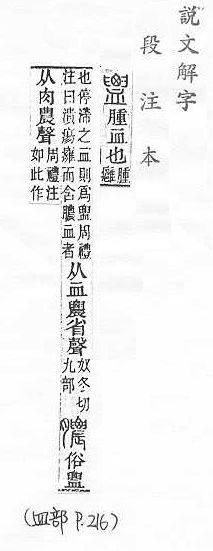 說文解字
段注本
𧗕腫血也腫癰
也停滯之血則爲𧗕周禮
注曰潰瘍癰而含膿血者
从血農省聲奴冬切九部膿俗𧗕
从肉農聲周禮注如此作
(血部 P.216)